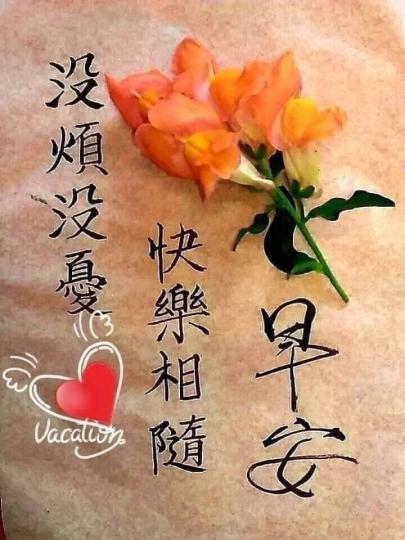 早安
快樂相隨
没煩没憂
Vacation